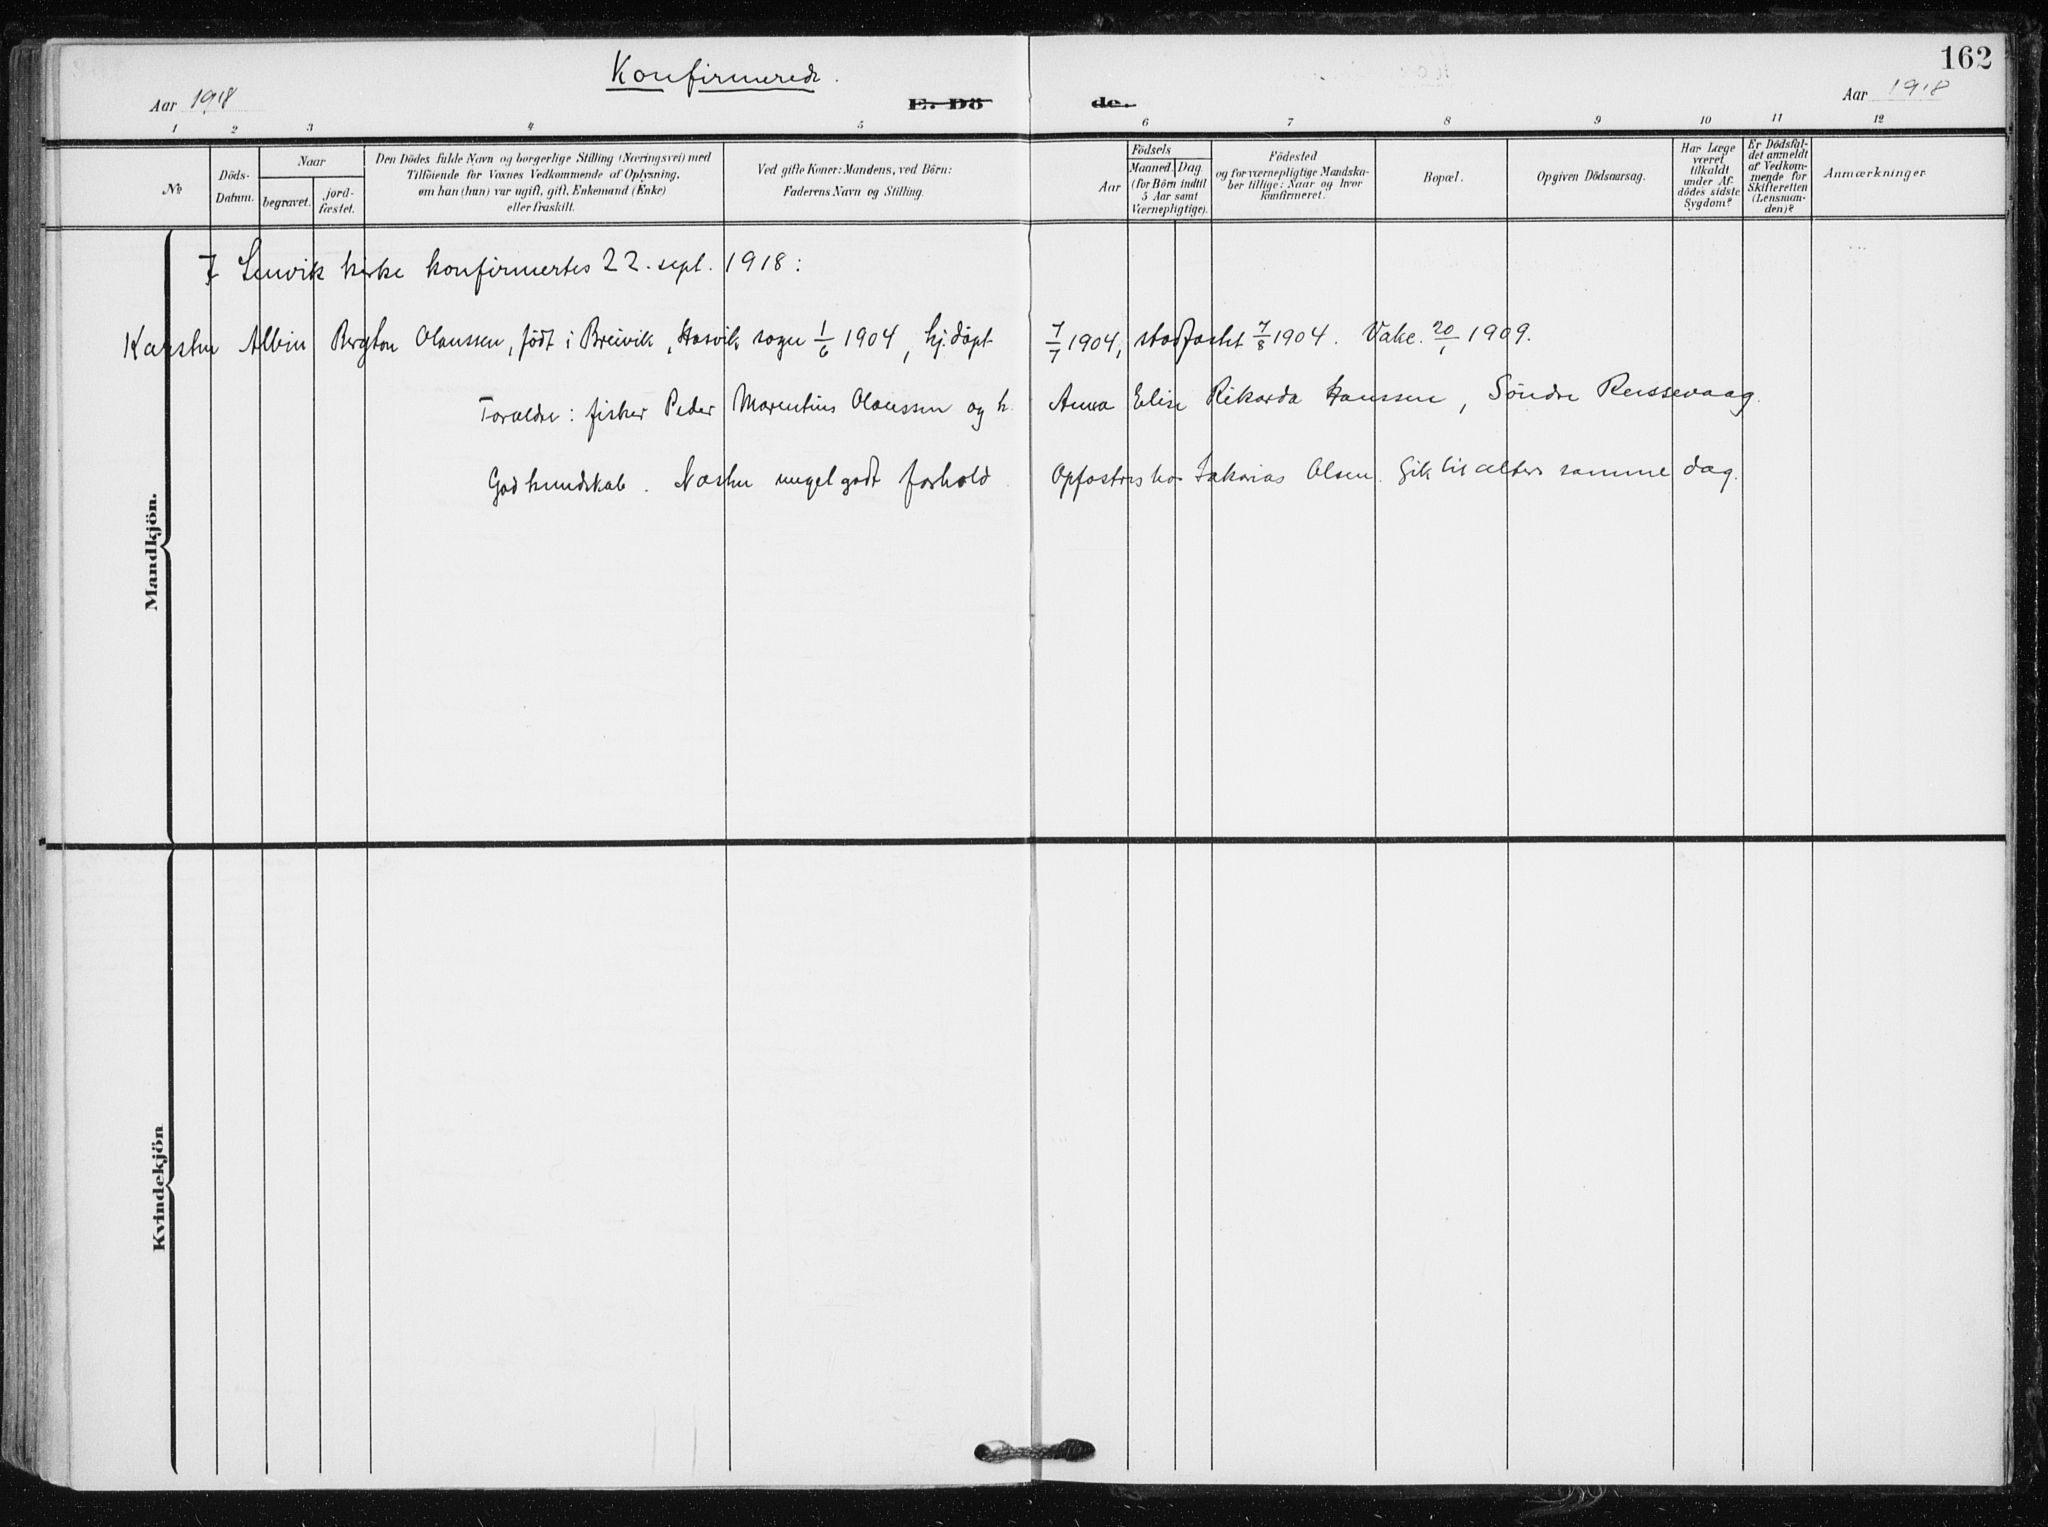 Konfirmerede.
162
Aar 1918
E. Dö de.
Aar 1918
1 2 3 4 5 6 7 8 9 10 11 12
No
Döds-Datum.
Naar
begravet.
jord-fæstet.
Den Dödes fulde Navn og borgerlige Stilling (Næringsvei) med
Tilföiende for Voxnes Vedkommende af Oplysning,
om han (hun) var ugift, gift, Enkemand (Enke)
eller fraskilt.
Ved gifte Koner: Mandens, ved Börn:
Faderens Navn og Stilling.
Aar
Födsels
Maaned. Dag.
(for Börn indtil
5 Aar samt
Værnepligtige).
Födested
og for værnepligtige Mandska-
ber tillige: Naar og hvor
konfirmeret.
Bopæl.
Opgiven Dödsaarsag.
Har Læge
været
tilkaldt
under Af-
dödes sidste
Sygdom?
Er Dödsfal-
det anmeldt
af Vedkom-
mende for
Skifteretten
(Lensman-
den)?
Anmærkninger
I Lenvik kirke konfirmertes 22. sept. 1918:
Karsten Albin Bergton Olaussen, født i Breivik, Hasvik sogn 1/6 1904, hj.døpt 7/7 1904, stadfæstet 7/8 1904. Vakc. 20/1 1909.
Forældre: fisker Peder Marentius Olaussen og h. Anna Elise Rikarda Hanssen, Söndre Reissevaag.
God kundskab. Næsten meget godt forhold. Opfostres hos Zakarias Olsen. Gik til alters samme dag.
Mandkjön.
Kvindekjön